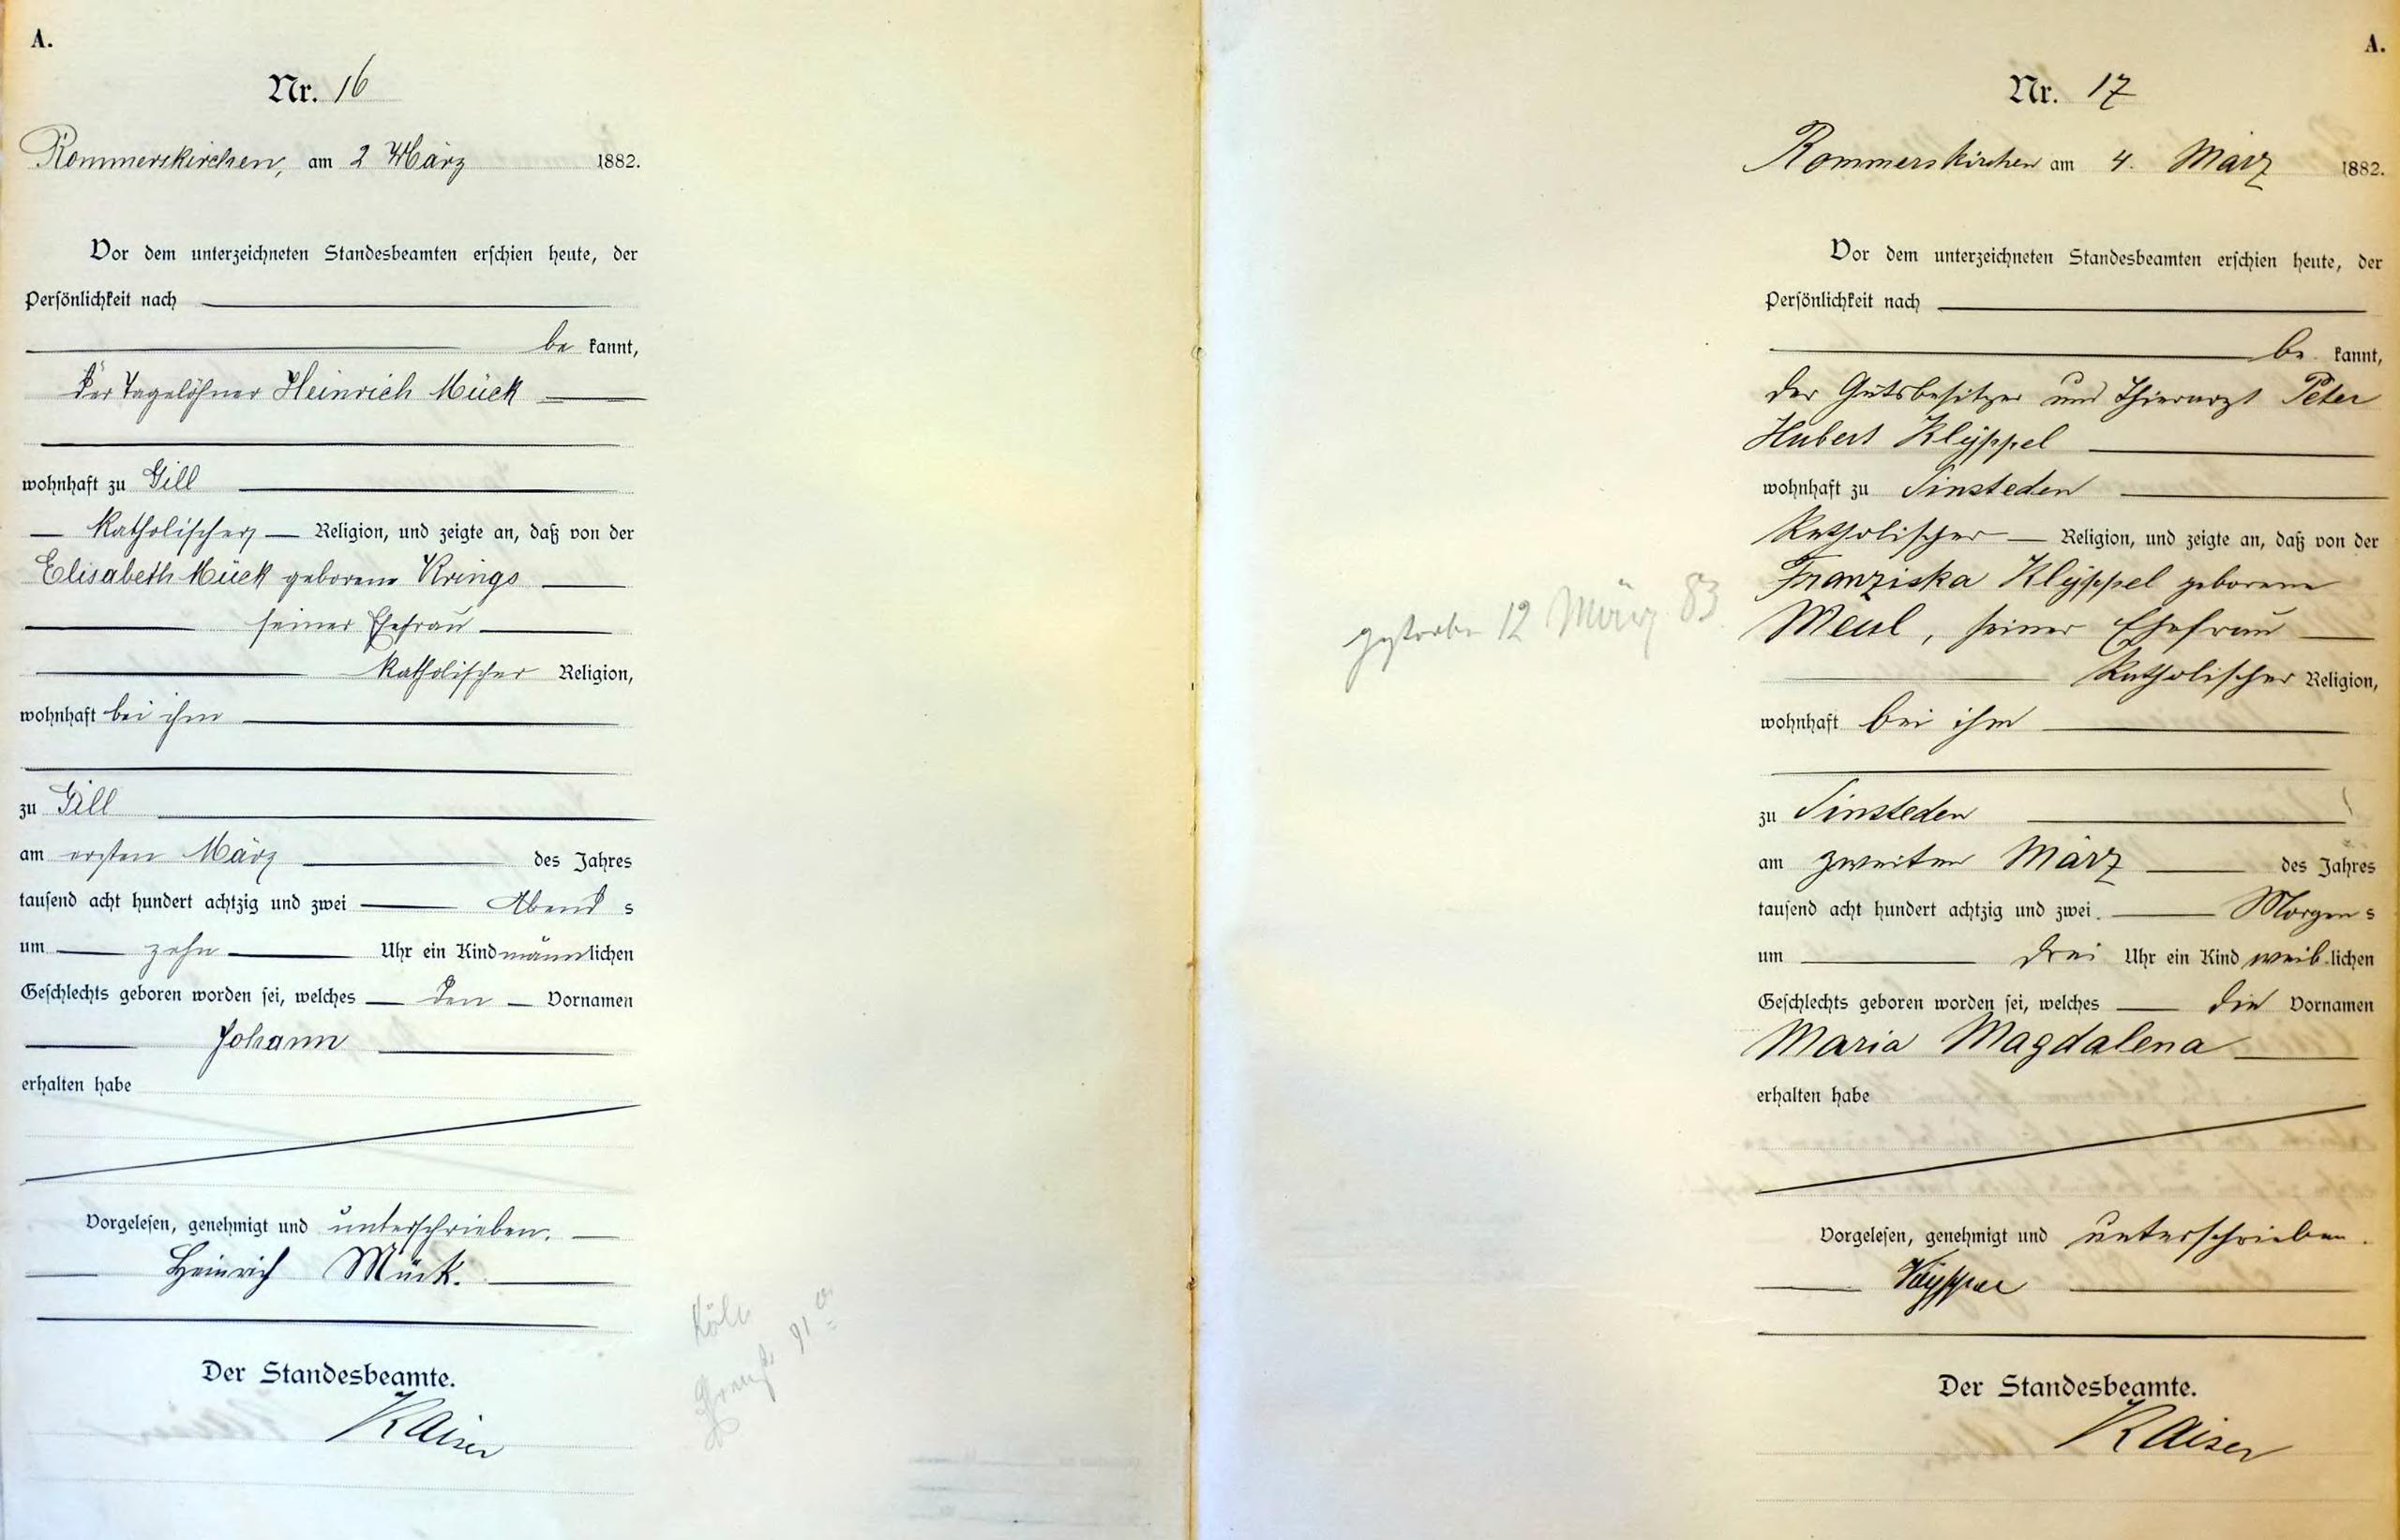 A.
Nr. 16
Rommerskirchen, am 2 März 1882.
Vor dem unterzeichneten Standesbeamten erschien heute, der
Persönlichkeit nach
be kannt,
der Tagelöhner Heinrich Mück
wohnhaft zu Gill
katholischer Religion, und zeigte an, daß von der
Elisabeth Mück geborene Krings
seiner Ehefrau
katholischer Religion,
wohnhaft bei ihm
zu Gill
am ersten März des Jahres
tausend acht hundert achtzig und zwei Abend s
um zehn Uhr ein Kind männlichen
Geschlechts geboren worden sei, welches den Vornamen
Johann
erhalten habe
Vorgelesen, genehmigt und unterschrieben.
Heinrich Mück.
Der Standesbeamte.
Kaiser
Köln
A.
Nr. 17
Rommerskirchen am 4. März 1882.
Vor dem unterzeichneten Standesbeamten erschien heute, der
Persönlichkeit nach
be kannt,
der Gutsbesitzer und Thierarzt Peter
Hubert Klÿppel
wohnhaft zu Sinsteden
katholischer Religion, und zeigte an, daß von der
Franziska Klÿppel geborene
Meul, seiner Ehefrau
katholischer Religion,
wohnhaft bei ihm
zu Sinsteden
am zweiten März des Jahres
tausend acht hundert achtzig und zwei Morgen s
um drei Uhr ein Kind weiblichen
Geschlechts geboren worden sei, welches die Vornamen
Maria Magdalena
erhalten habe
Vorgelesen, genehmigt und unterschrieben.
Der Standesbeamte.
Kaiser
gestorben 12 März 83